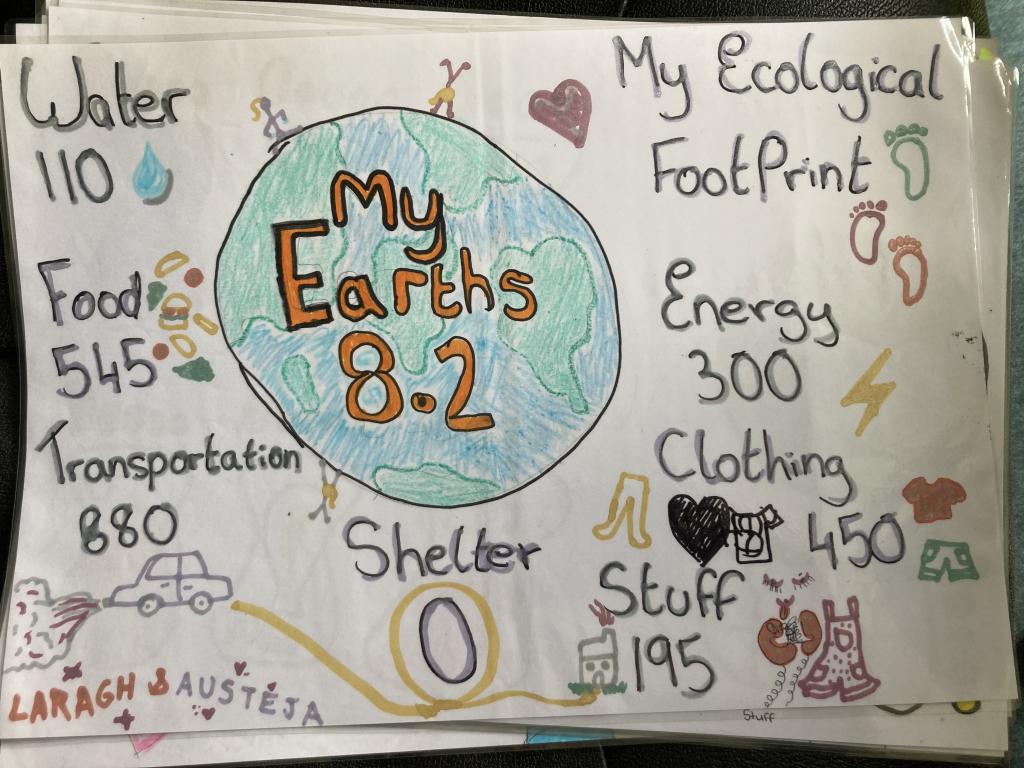 Water
110
Food
545
Transportation
880
My
Earths
8.2
Shelter
0
My Ecological
FootPrint
Energy
300
Clothing
450
Stuff
195
Stuff
LARAGH & AUSTĖJA